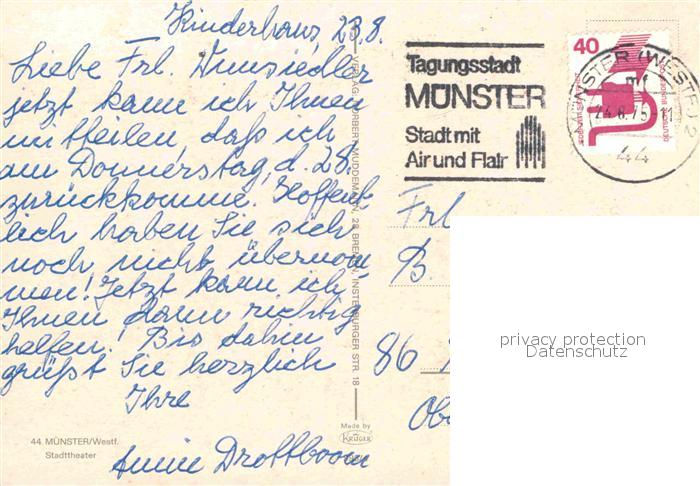 Kinderhaus, 23.8.
Liebe Frl. Wunsiedler
jetzt kann ich Ihnen
mitteilen, daß ich
am Donnerstag, d. 28.
zurückkomme. Hoffent
lich haben Sie sich
noch nicht übernom
men! Jetzt kann ich
Ihnen dann richtig
helfen! Bis dahin
grüßt Sie herzlich
Ihre
44 MÜNSTER/Westf.
Stadttheater
VERLAG: NORBERT MUDDEMANN, 28 BREMEN, INSTERBURGER STR. 18
Made by
KRÜGER
Tagungsstadt
MÜNSTER
Stadt mit
Air und Flair
40
DEUTSCHE BUNDESPOST
MÜNSTER (WESTF)
44
Frl
B.
86
privacy protection
Datenschutz